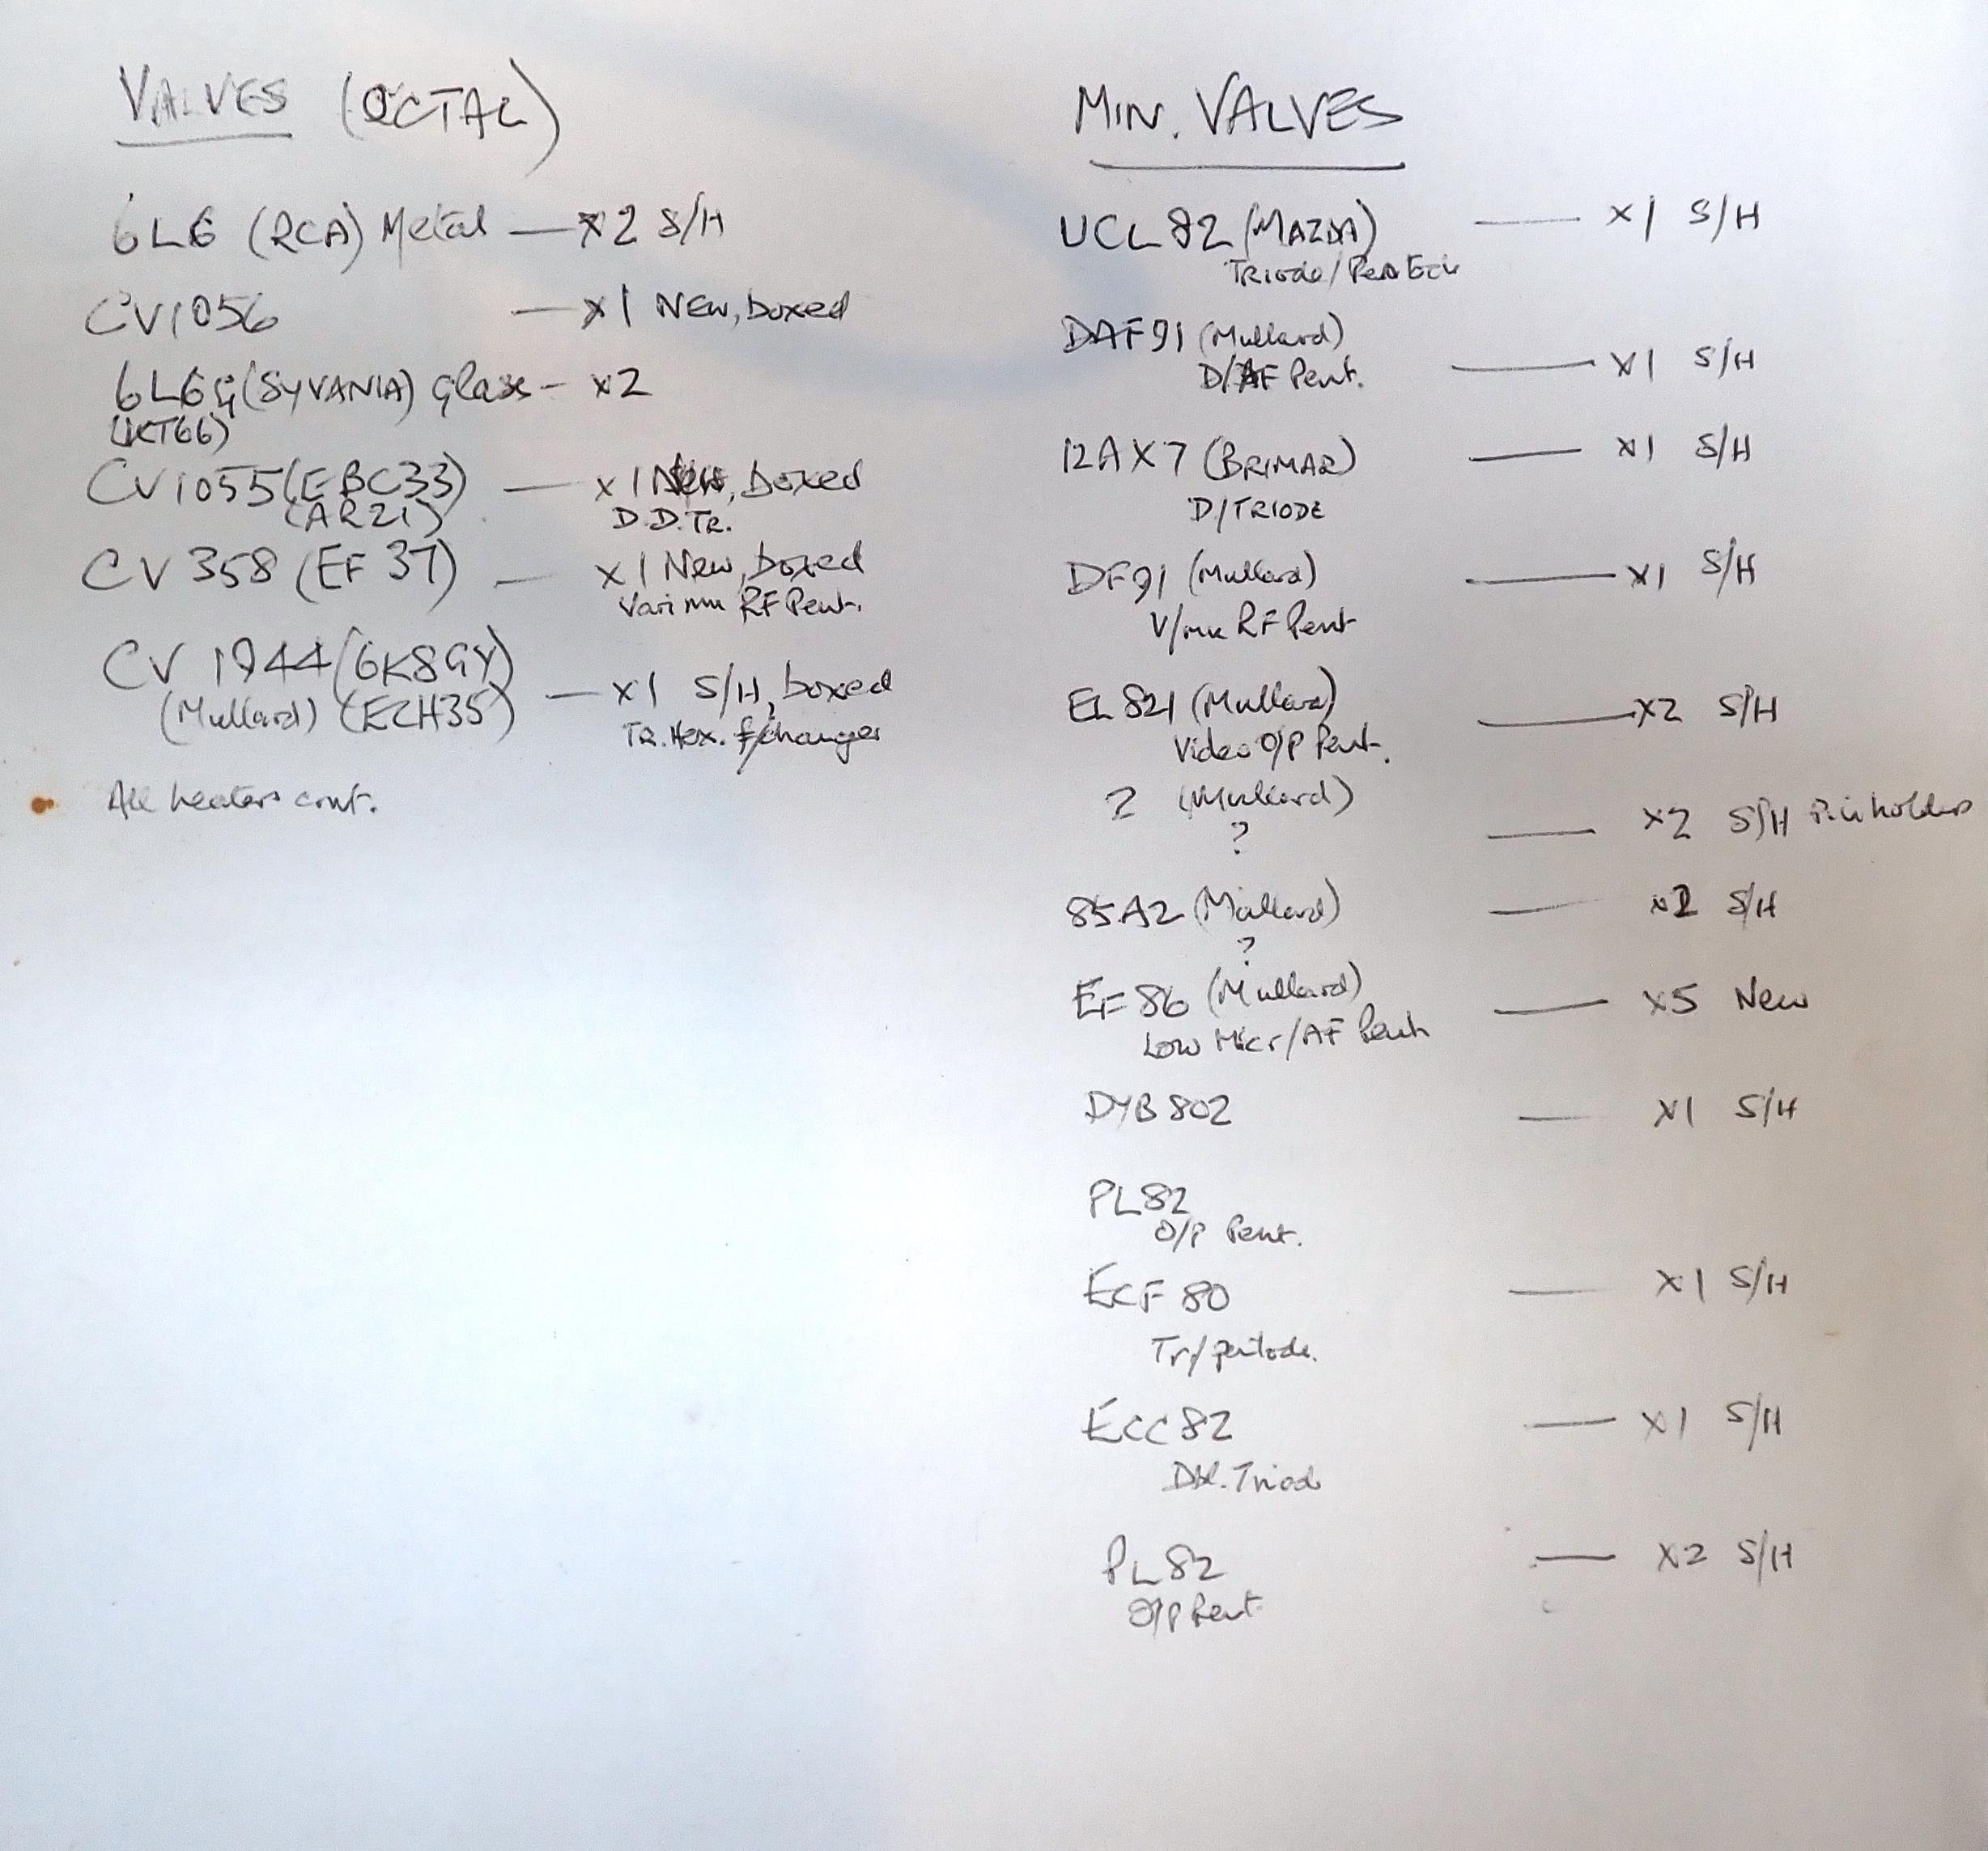 VALVES (OCTAL)
6L6 (RCA) Metal — x2 S/H
CV1056 — x1 New, boxed
6L6G (SYVANIA) Glass - x2
(KT66)
CV1055 (EBC33) — x1 New, boxed
(AR21) D.D.Tr.
CV 358 (EF 37) — x1 New, boxed
Vari mu RF Pent.
CV 1944 (6K8GY)
(Mullard) (ECH35) — x1 S/H, boxed
Tr. Hex. f/changer
All heaters cont.
MIN. VALVES
UCL82 (MAZDA) — x1 S/H
Triode/
DAF91 (Mullard)
D/AF Pent. — x1 S/H
12AX7 (BRIMAR) — x1 S/H
D/TRIODE
DF91 (Mullard) — x1 S/H
V/mu RF Pent
EL821 (Mullard) — x2 S/H
Video O/P Pent.
? (Mullard)
? — x2 S/H holders
85A2 (Mullard) — S/H
?
EF86 (Mullard) — x5 New
Low Micr/AF Pent
DYB802 — x1 S/H
PL82
O/P Pent.
ECF 80 — x1 S/H
Tr/pentode.
ECC82 — x1 S/H
Dbl. Triode
PL82 — x2 S/H
O/P Pent